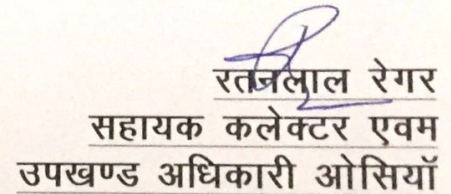 रतनलाल रेगर
सहायक कलेक्टर एवम
उपखण्ड अधिकारी ओसियॉ